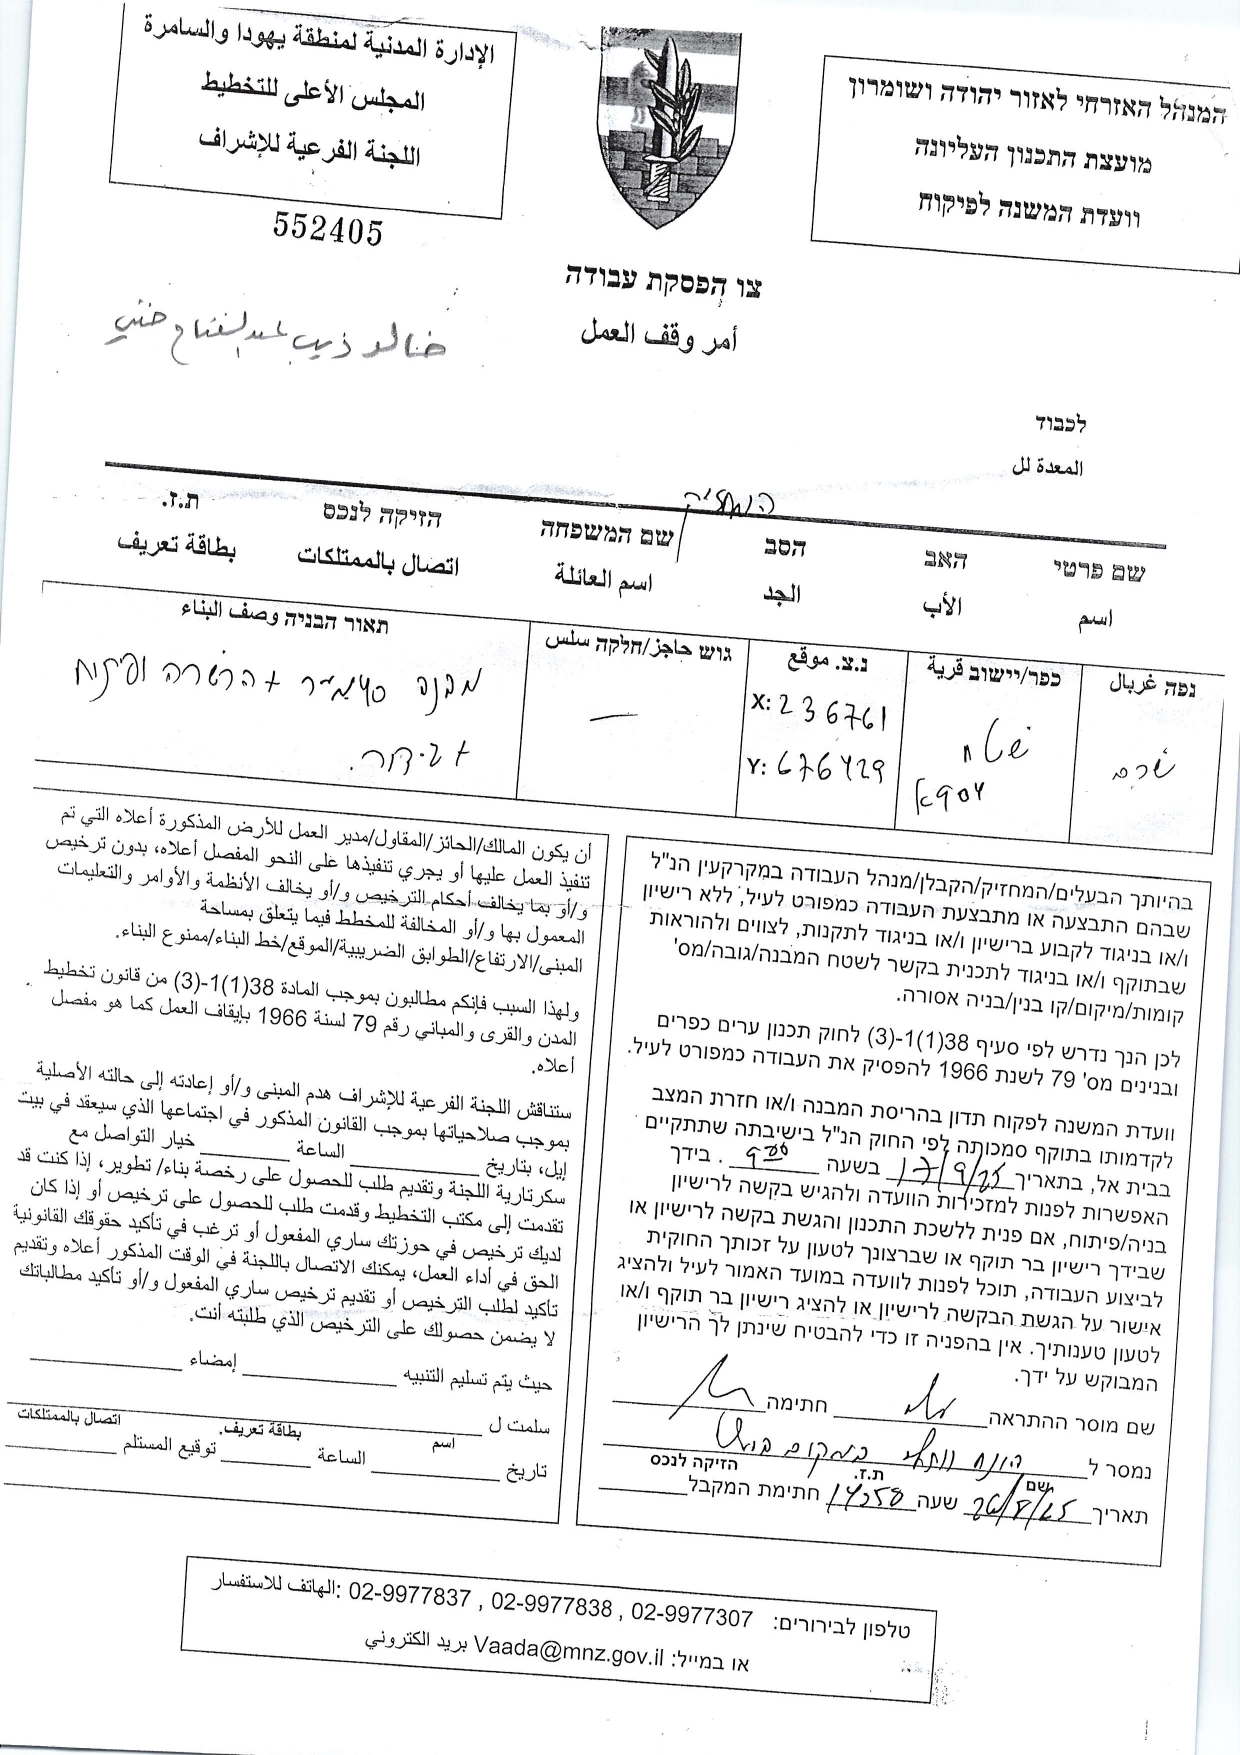 המנהל האזרחי לאזור יהודה ושומרון
מועצת התכנון העליונה
וועדת המשנה לפיקוח
الإدارة المدنية لمنطقة يهودا والسامرة
المجلس الأعلى للتخطيط
اللجنة الفرعية للإشراف
552405
צו הפסקת עבודה
أمر وقف العمل
خالد ذيب عبد الفتاح حنني
לכבוד
المعدة لل
המחזיק
שם פרטי האב הסב שם המשפחה הזיקה לנכס ת.ז.
اسم الأب الجد اسم العائلة اتصال بالممتلكات بطاقة تعريف
נפה غربال כפר/יישוב قرية נ.צ. موقع גוש حاجز/חלקה سلس תאור הבניה وصف البناء
שכם
X: 236761
Y: 676429
—
מבנה
בהיותך הבעלים/המחזיק/הקבלן/מנהל העבודה במקרקעין הנ"ל
שבהם התבצעה או מתבצעת העבודה כמפורט לעיל, ללא רישיון
ו/או בניגוד לקבוע ברישיון ו/או בניגוד לתקנות, לצווים ולהוראות
שבתוקף ו/או בניגוד לתכנית בקשר לשטח המבנה/גובה/מס'
קומות/מיקום/קו בנין/בניה אסורה.
לכן הנך נדרש לפי סעיף 38(1)1-(3) לחוק תכנון ערים כפרים
ובנינים מס' 79 לשנת 1966 להפסיק את העבודה כמפורט לעיל.
וועדת המשנה לפקוח תדון בהריסת המבנה ו/או חזרת המצב
לקדמותו בתוקף סמכותה לפי החוק הנ"ל בישיבתה שתתקיים
בבית אל, בתאריך 17/9/25 בשעה 9:00. בידך
האפשרות לפנות למזכירות הוועדה ולהגיש בקשה לרישיון
בניה/פיתוח, אם פנית ללשכת התכנון והגשת בקשה לרישיון או
שבידך רישיון בר תוקף או שברצונך לטעון על זכותך החוקית
לביצוע העבודה, תוכל לפנות לוועדה במועד האמור לעיל ולהציג
אישור על הגשת הבקשה לרישיון או להציג רישיון בר תוקף ו/או
לטעון טענותיך. אין בהפניה זו כדי להבטיח שינתן לך הרישיון
המבוקש על ידך.
שם מוסר ההתראה חתימה
נמסר ל הונח במקום בולט
שם ת.ז. הזיקה לנכס
תאריך 26/8/25 שעה 14:58 חתימת המקבל
أن يكون المالك/الحائز/المقاول/مدير العمل للأرض المذكورة أعلاه التي تم
تنفيذ العمل عليها أو يجري تنفيذها على النحو المفصل أعلاه، بدون ترخيص
و/أو بما يخالف أحكام الترخيص و/أو يخالف الأنظمة والأوامر والتعليمات
المعمول بها و/أو المخالفة للمخطط فيما يتعلق بمساحة
المبنى/الارتفاع/الطوابق الضريبية/الموقع/خط البناء/ممنوع البناء.
ولهذا السبب فإنكم مطالبون بموجب المادة 38(1)1-(3) من قانون تخطيط
المدن والقرى والمباني رقم 79 لسنة 1966 بإيقاف العمل كما هو مفصل
أعلاه.
ستناقش اللجنة الفرعية للإشراف هدم المبنى و/أو إعادته إلى حالته الأصلية
بموجب صلاحياتها بموجب القانون المذكور في اجتماعها الذي سيعقد في بيت
إيل، بتاريخ الساعة خيار التواصل مع
سكرتارية اللجنة وتقديم طلب للحصول على رخصة بناء/ تطوير، إذا كنت قد
تقدمت إلى مكتب التخطيط وقدمت طلب للحصول على ترخيص أو إذا كان
لديك ترخيص في حوزتك ساري المفعول أو ترغب في تأكيد حقوقك القانونية
الحق في أداء العمل، يمكنك الاتصال باللجنة في الوقت المذكور أعلاه وتقديم
تأكيد لطلب الترخيص أو تقديم ترخيص ساري المفعول و/أو تأكيد مطالباتك
لا يضمن حصولك على الترخيص الذي طلبته أنت.
حيث يتم تسليم التنبيه إمضاء
سلمت ل
اسم بطاقة تعريف. اتصال بالممتلكات
تاريخ الساعة توقيع المستلم
טלפון לבירורים: 02-9977307 , 02-9977838 , 02-9977837 :الهاتف للاستفسار
או במייל: Vaada@mnz.gov.il بريد الكتروني